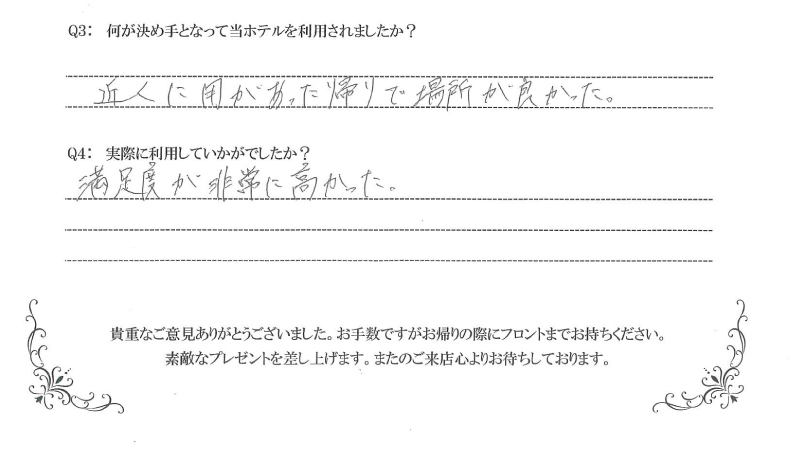 Q3： 何が決め手となって当ホテルを利用されましたか？
近人に用があった帰りで場所が良かった。
Q4： 実際に利用していかがでしたか？
満足度が非常に高かった。
貴重なご意見ありがとうございました。お手数ですがお帰りの際にフロントまでお持ちください。
素敵なプレゼントを差し上げます。またのご来店心よりお待ちしております。